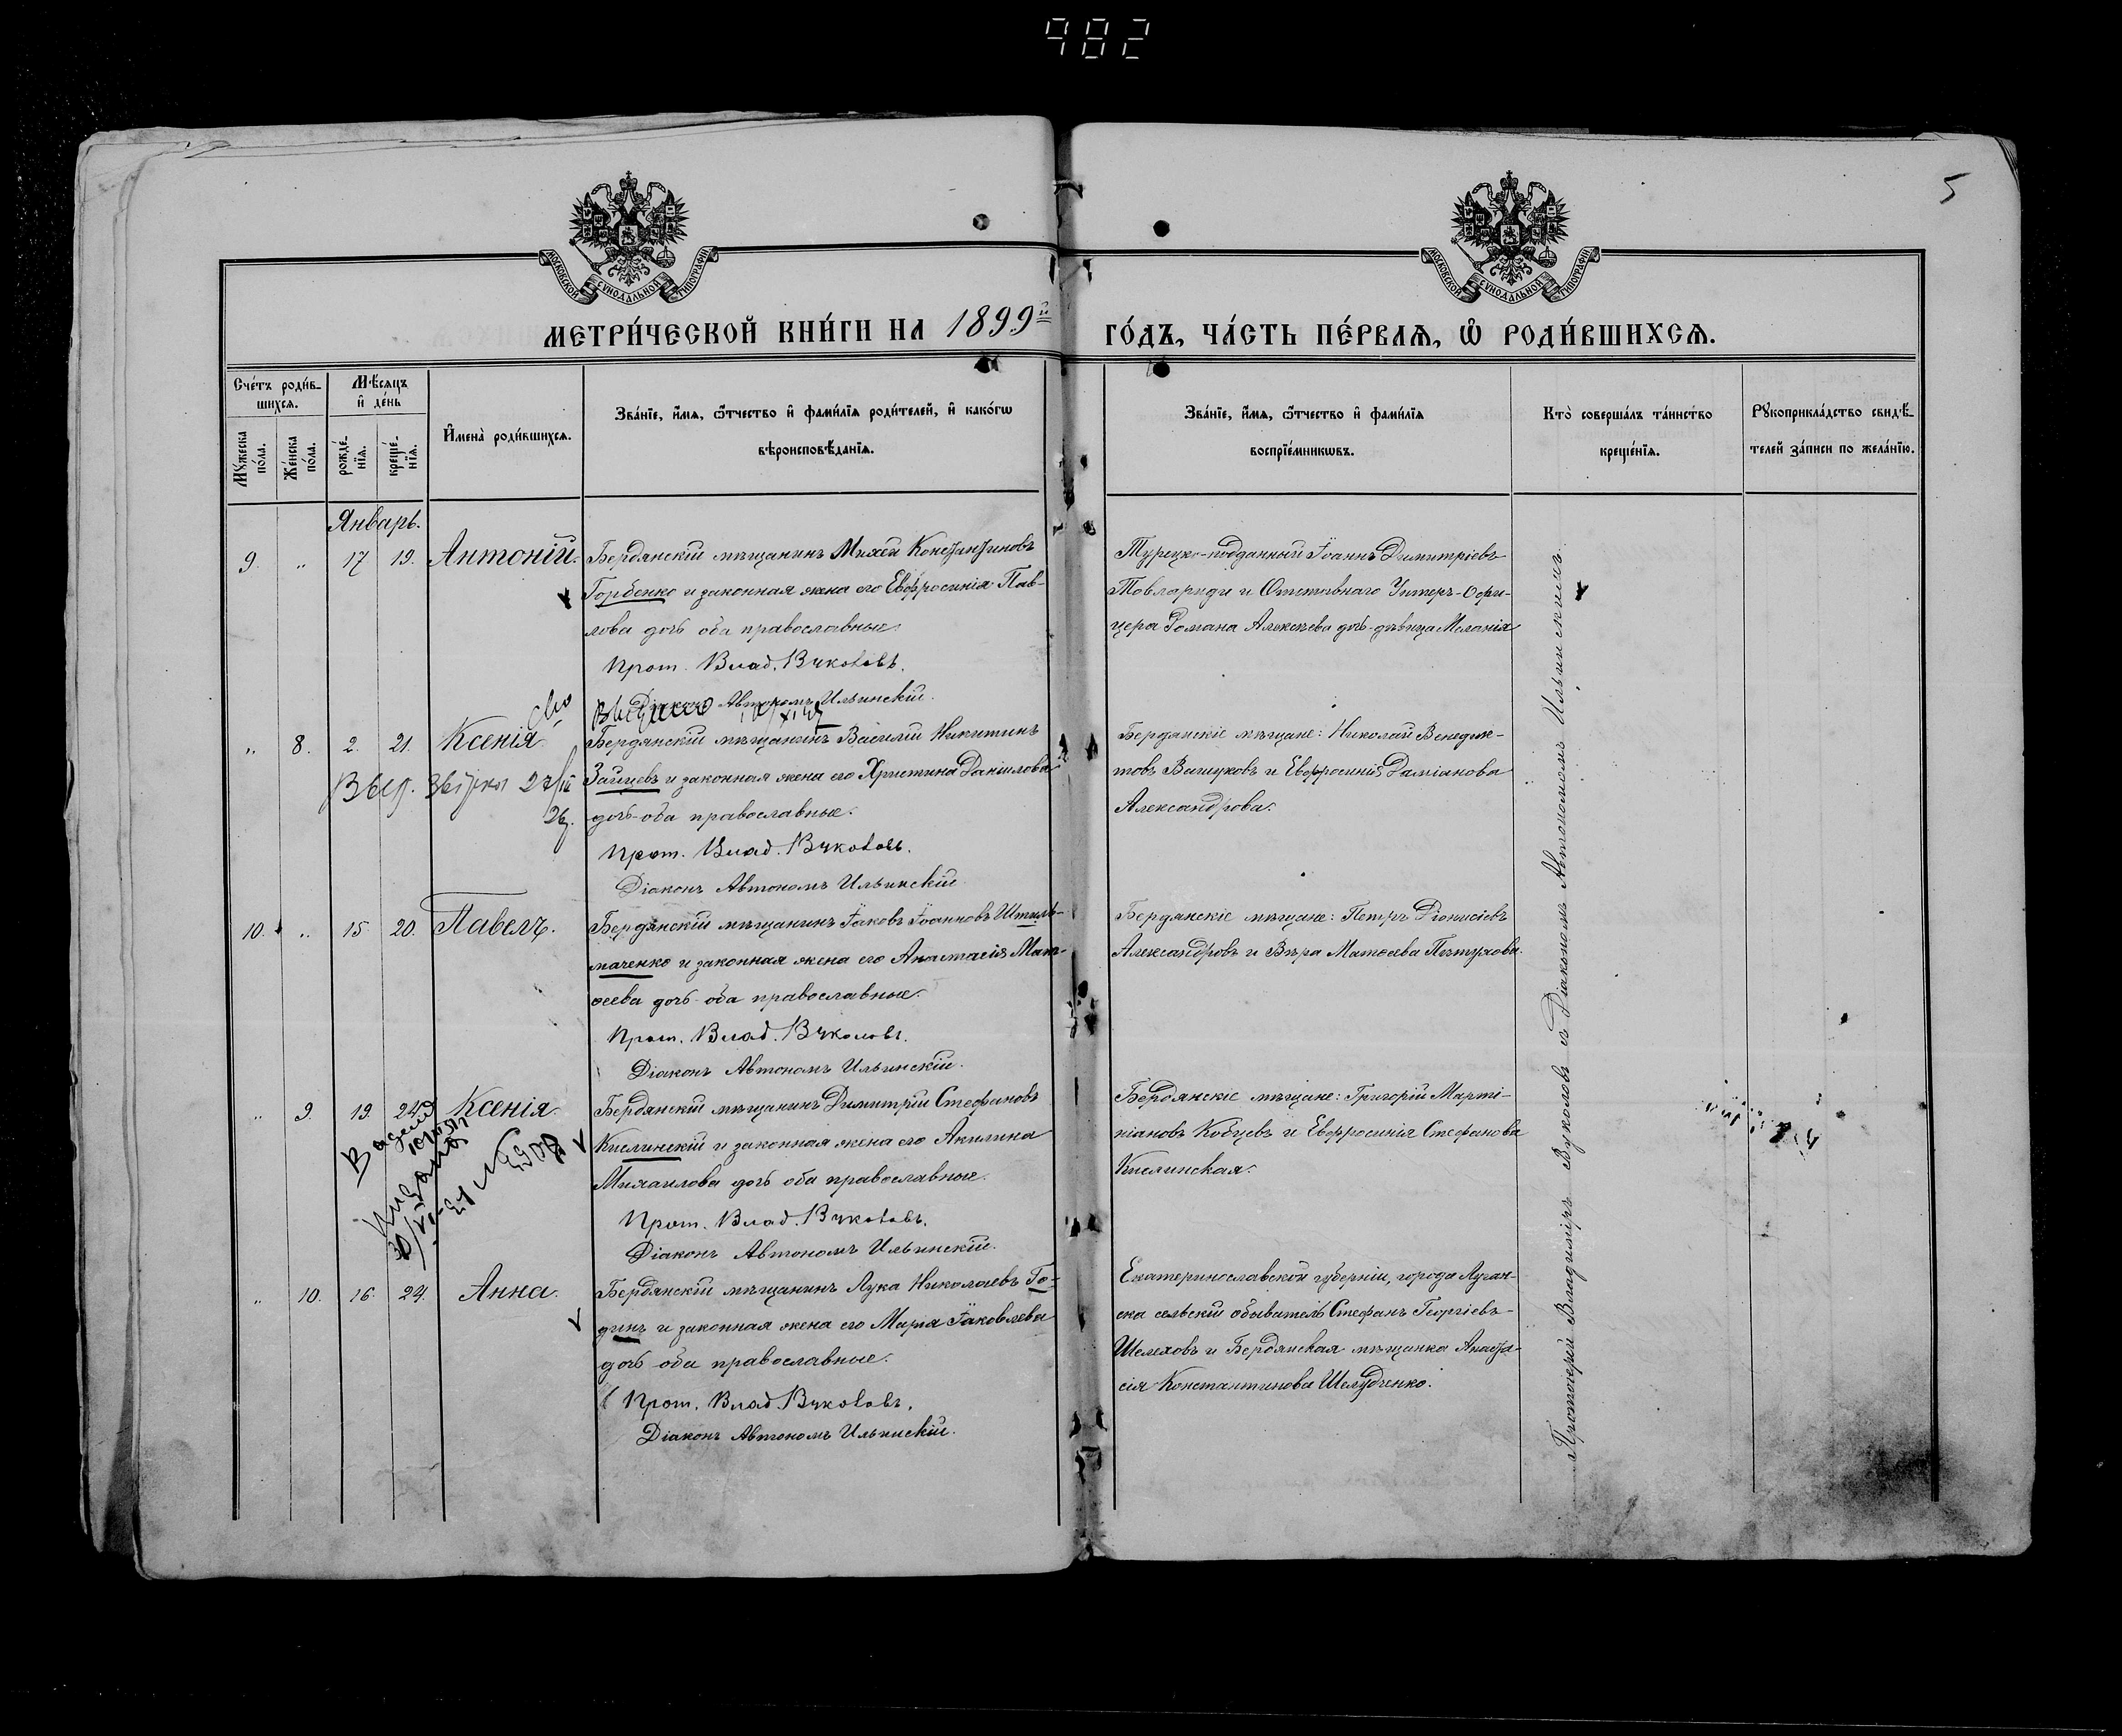 982
5
МОСКОВСКОЙ СУНОДАЛЬНОЙ ТИПОГРАФІИ
МОСКОВСКОЙ СУНОДАЛЬНОЙ ТИПОГРАФІИ
МЕТРИ́ЧЕСКОЙ КНИ́ГИ НА 1899й ГО́ДЪ, ЧА́СТЬ ПЕ́РВАѦ, Ѡ҆ РОДИ́ВШИХСѦ.
Сче́тъ роди́в-
шихся.
Мꙋжеска по́ла.
Же́нска по́ла.
Мѣ́сяцъ и҆ де́нь
рожде́-
нїя.
креще́-
нїя.
И҆мена̀ роди́вшихся.
Зва́нїе, и҆́мя, ѻ҆́тчество и҆ фами́лїя роди́телей, и҆ како́гѡ
вѣроисповѣ́данїя.
Зва́нїе, и҆́мя, ѻ҆́тчество и҆ фами́лїя
воспрїе́мникѡвъ.
Кто̀ соверша́лъ та́инство
креще́нїя.
Рꙋкоприкла́дство свидѣ́-
телей за́писи по жела́нїю.
Январь.
9. „ 17 19. Антоній. Бердянскій мѣщанинъ Михей Константиновъ
Горбенко и законная жена его Евфросинія Пав-
лова дочь оба православные.
Прот. Влад. Вуколовъ.
Діаконъ Автономъ Ильинскій.
Турецко-подданный Іоаннъ Димитріевъ
Товлариди и Отставнаго Унтеръ-Офи-
цера Романа Алексѣева дочь-дѣвица Меланія
„ 8. 2. 21. Ксенія Бердянскій мѣщанинъ Василій Никитинъ
Зайцевъ и законная жена его Христина Даніилова
дочь-оба православные.
Прот. Влад. Вуколовъ.
Діаконъ Автономъ Ильинскій
Выд.
26.
Бердянскіе мѣщане: Николай Венедик-
товъ и Евфросинія Даміанова
Александрова.
10. „ 15 20. Павелъ. Бердянскій мѣщанинъ Іаковъ Іоанновъ Штиль-
маченко и законная жена его Анастасія Мат-
ѳеева дочь-оба православные.
Прот. Влад. Вуколовъ.
Діаконъ Автономъ Ильинскій.
Бердянскіе мѣщане: Петръ Діонисіевъ
Александровъ и Вѣра Матѳеева Пѣтухова.
„ 9. 19. 24. Ксенія. Бердянскій мѣщанинъ Димитрій Стефановъ
Кислинскій и законная жена его Акилина
Михаилова дочь оба православные.
Прот. Влад. Вуколовъ.
Діаконъ Автономъ Ильинскій.
Бердянскіе мѣщане: Григорій Марті-
ніановъ Кобцевъ и Евфросинія Стефанова
Кислинская.
„ 10. 16. 24. Анна. Бердянскій мѣщанинъ Лука Николаевъ Го-
динъ и законная жена его Марія Іаковлева
дочь оба православные.
Прот. Влад. Вуколовъ.
Діаконъ Автономъ Ильинскій.
Екатеринославской губерніи, города Луган-
ска сельскій обыватель Стефанъ Георгіевъ
Шелеховъ и Бердянская мѣщанка Анаста-
сія Константинова Шелудченко.
Протоіерей Владиміръ Вуколовъ съ Діакономъ Автономомъ Ильинскимъ